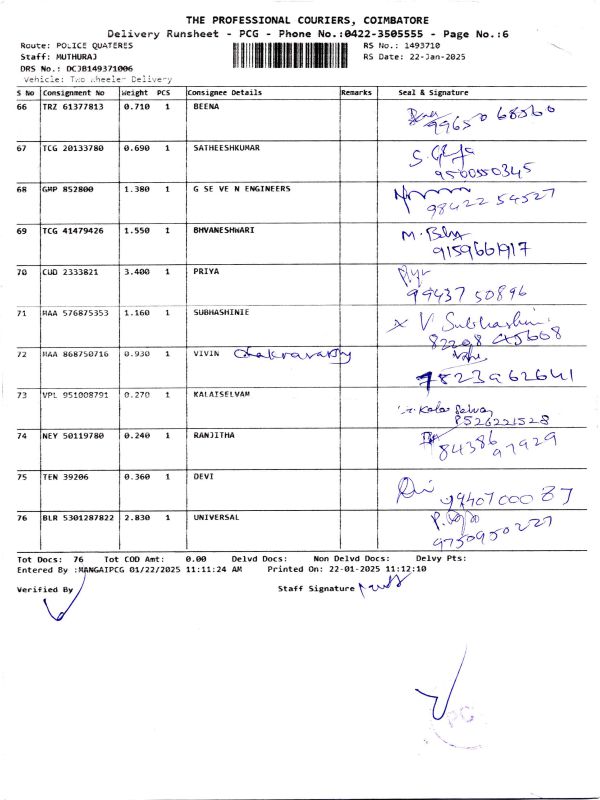 THE PROFESSIONAL COURIERS, COIMBATORE
Delivery Runsheet - PCG - Phone No.:0422-3505555 - Page No.:6
Route: POLICE QUATERES RS No.: 1493710
Staff: MUTHURAJ RS Date: 22-Jan-2025
DRS No.: DCJB149371006
Vehicle: Two Wheeler Delivery
S No Consignment No Weight PCS Consignee Details Remarks Seal & Signature
66 TRZ 61377813 0.710 1 BEENA
99650 68560
67 TCG 20133780 0.690 1 SATHEESHKUMAR
9500550345
68 GMP 852800 1.380 1 G SE VE N ENGINEERS
98422 54527
69 TCG 41479426 1.550 1 BHVANESHWARI M.
9159661917
70 CUD 2333821 3.400 1 PRIYA
99437 50896
71 MAA 576875353 1.160 1 SUBHASHINIE V. Subhashini
82208 45608
72 MAA 868750716 0.930 1 VIVIN Chakravarthy
7823962641
73 VPL 951008791 0.270 1 KALAISELVAM Kalai Selvan
8526221528
74 NEY 50119780 0.240 1 RANJITHA
84386 97929
75 TEN 39206 0.360 1 DEVI
76 BLR 5301287822 2.830 1 UNIVERSAL
9750950227
Tot Docs: 76 Tot COD Amt: 0.00 Delvd Docs: Non Delvd Docs: Delvy Pts:
Entered By :MANGAIPCG 01/22/2025 11:11:24 AM Printed On: 22-01-2025 11:12:10
Verified By Staff Signature
PCG